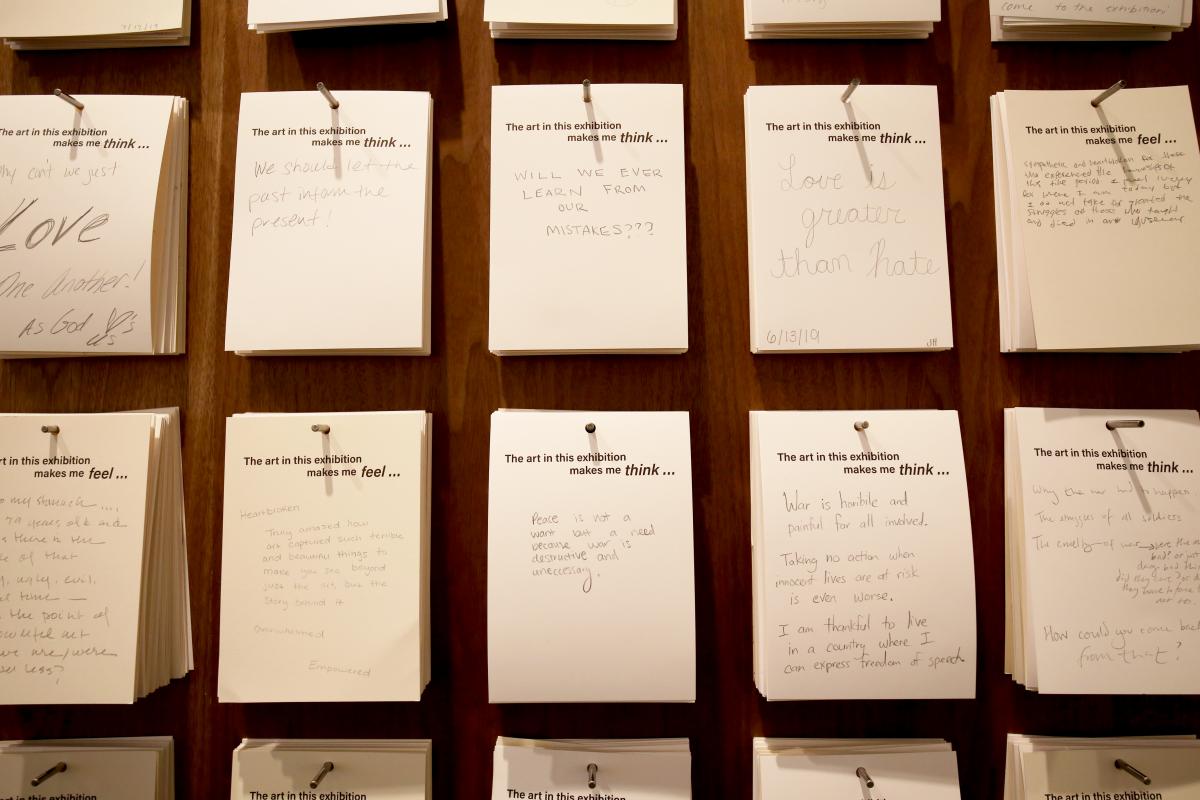 7/17/19
come to the exhibition!
The art in this exhibition
makes me think ...
why can't we just
Love
One Another!
As God
The art in this exhibition
makes me think ...
We should let the
past inform the
present!
The art in this exhibition
makes me think ...
WILL WE EVER
LEARN FROM
OUR
MISTAKES???
The art in this exhibition
makes me think ...
Love is
greater
than hate
6/13/19
JH
The art in this exhibition
makes me feel ...
Sympathetic and heartbroken for those
who experienced the
this time period. I
for where I am today but
I do not take for granted the
struggles of those who fought
and died in
The art in this exhibition
makes me feel ...
to my stomach ....
72 years old and
there is the
of that
ugly, evil,
time —
the point of
powerful art
we are/were
less?
The art in this exhibition
makes me feel ...
Heartbroken
Truly amazed how
art captured such terrible
and beautiful things to
make you see beyond
just the art, but the
story behind it
Overwhelmed
Empowered
The art in this exhibition
makes me think ...
Peace is not a
want but a need
because war is
destructive and
unnecessary.
The art in this exhibition
makes me think ...
War is horible and
painful for all involved.
Taking no action when
innocent lives are at risk
is even worse.
I am thankful to live
in a country where I
can express freedom of speech
The art in this exhibition
makes me think ...
Why the war had to happen
The struggles of all soldiers
The cruelty of war were the
bad? or just
did they
they have to
or not.
How could you come back
from that?
The art in this exhibition
The art in this exhibition
The art in this exhibition
The art in this exhibition
The art in this exhibition